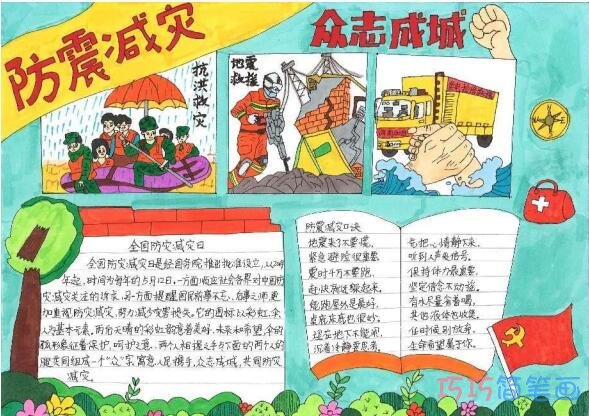 防震减灾
众志成城
抗洪救灾
地震
救援
全国防灾减灾日
全国防灾减灾日是经国务院批准设立,从2009
年起,时间为每年的5月12日。一方面顺应社会各界对中国防
灾减灾关注的诉求,另一方面提醒国民前事不忘、后事之师,更
加重视防灾减灾,努力减少灾害损失。它的图标以彩虹、伞、
人为基本元素,雨后天晴的彩虹寓意着美好、未来和希望,伞的
弧形象征着保护、呵护之意,两个人相握之手与下面的两个人的
腿共同组成一个“众”字,寓意人民携手,众志成城,共同防灾
减灾。
防震减灾口诀
地震来了不要慌,
紧急避险很重要,
震时千万不要跑,
赶快就近躲起来,
能跑屋外是最好,
桌底床底也很妙。
现在地下不能
沉着冷静要思考。
先把心情静下来,
听到人声来信号。
保持体力最重要,
坚定信念不动摇。
有水尽量省着喝,
其他液体也放
任何时刻别放弃,
生命希望属于你。
巧巧简笔画